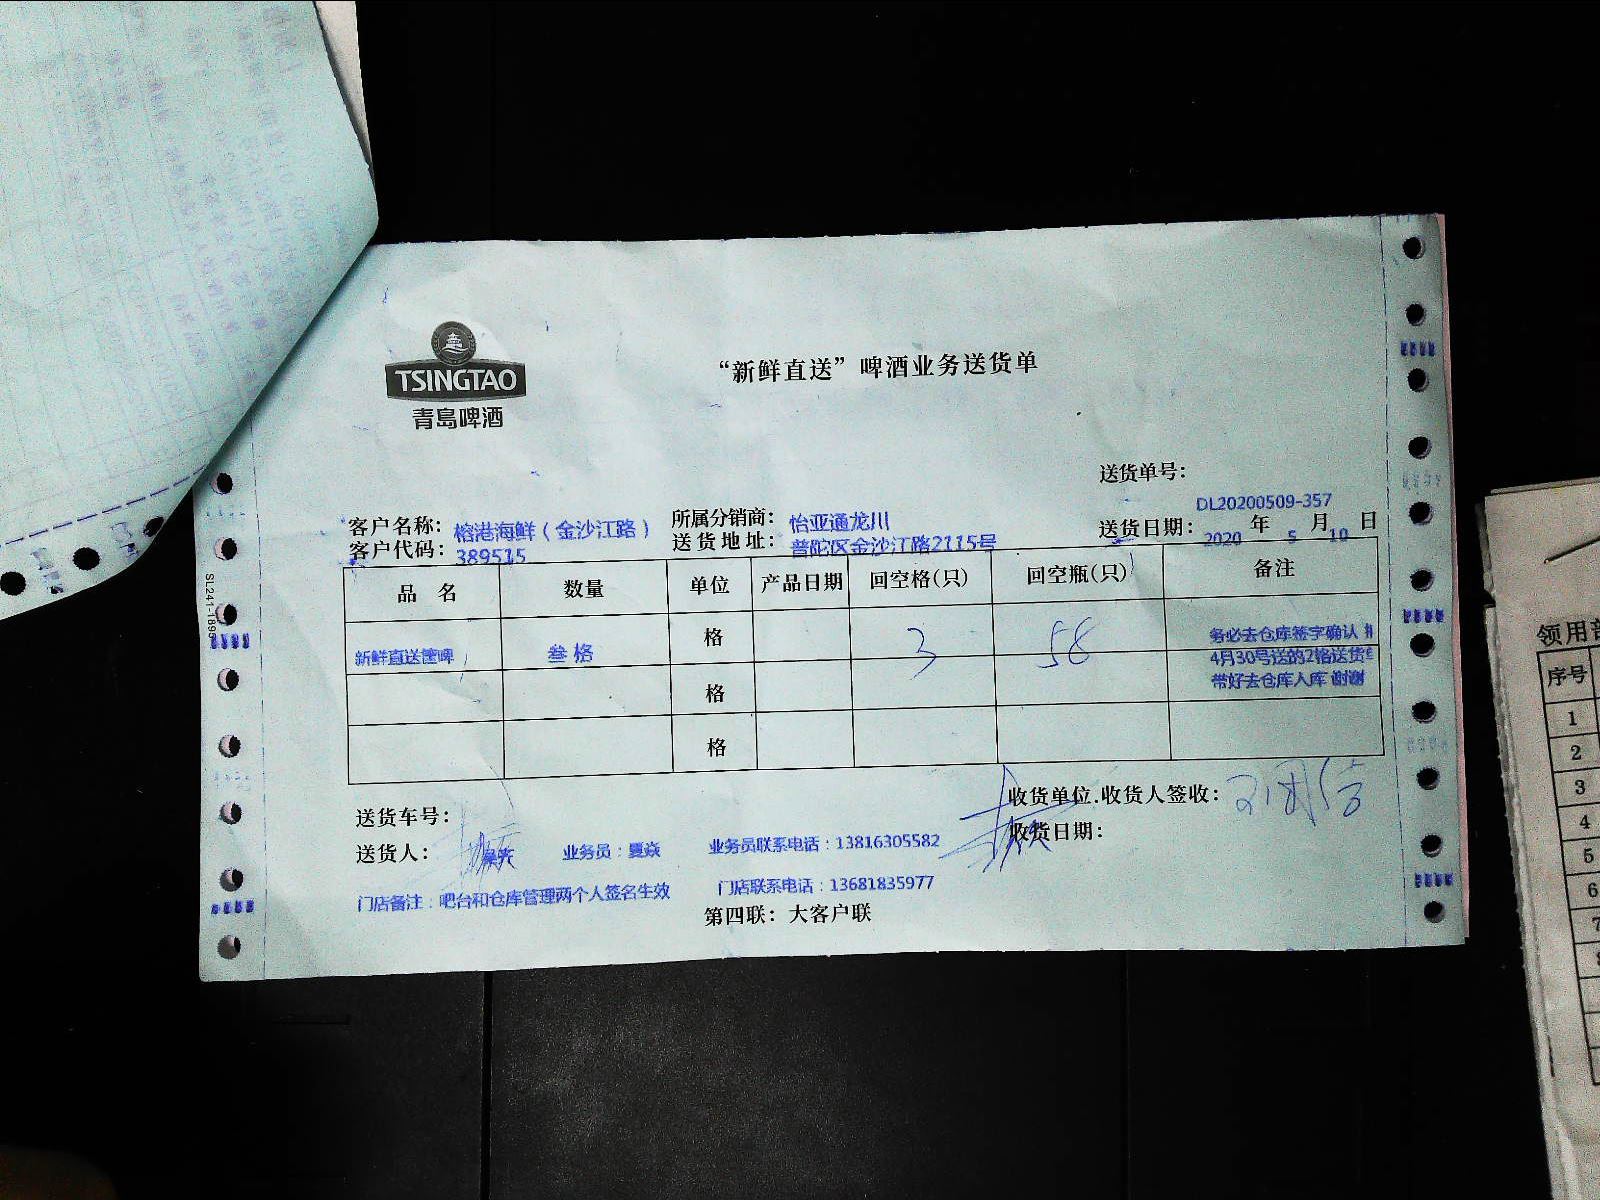 TSINGTAO
青岛啤酒
“新鲜直送”啤酒业务送货单
送货单号：
DL20200509-357
客户名称：榕港海鲜（金沙江路） 所属分销商：怡亚通龙川 送货日期：2020年5月10日
客户代码：389515 送货地址：普陀区金沙江路2115号
品 名 数量 单位 产品日期 回空格(只) 回空瓶(只) 备注
新鲜直送篓啤 叁格 格 3 58 务必去仓库签字确认
4月30号送的2格送货单
带好去仓库入库 谢谢
格
格
送货车号： 收货单位.收货人签收：
送货人： 业务员：夏焱 业务员联系电话：13816305582 收货日期：
门店备注：吧台和仓库管理两个人签名生效 门店联系电话：13681835977
第四联：大客户联
SL241-189
领用
序号
1
2
3
4
5
6
7